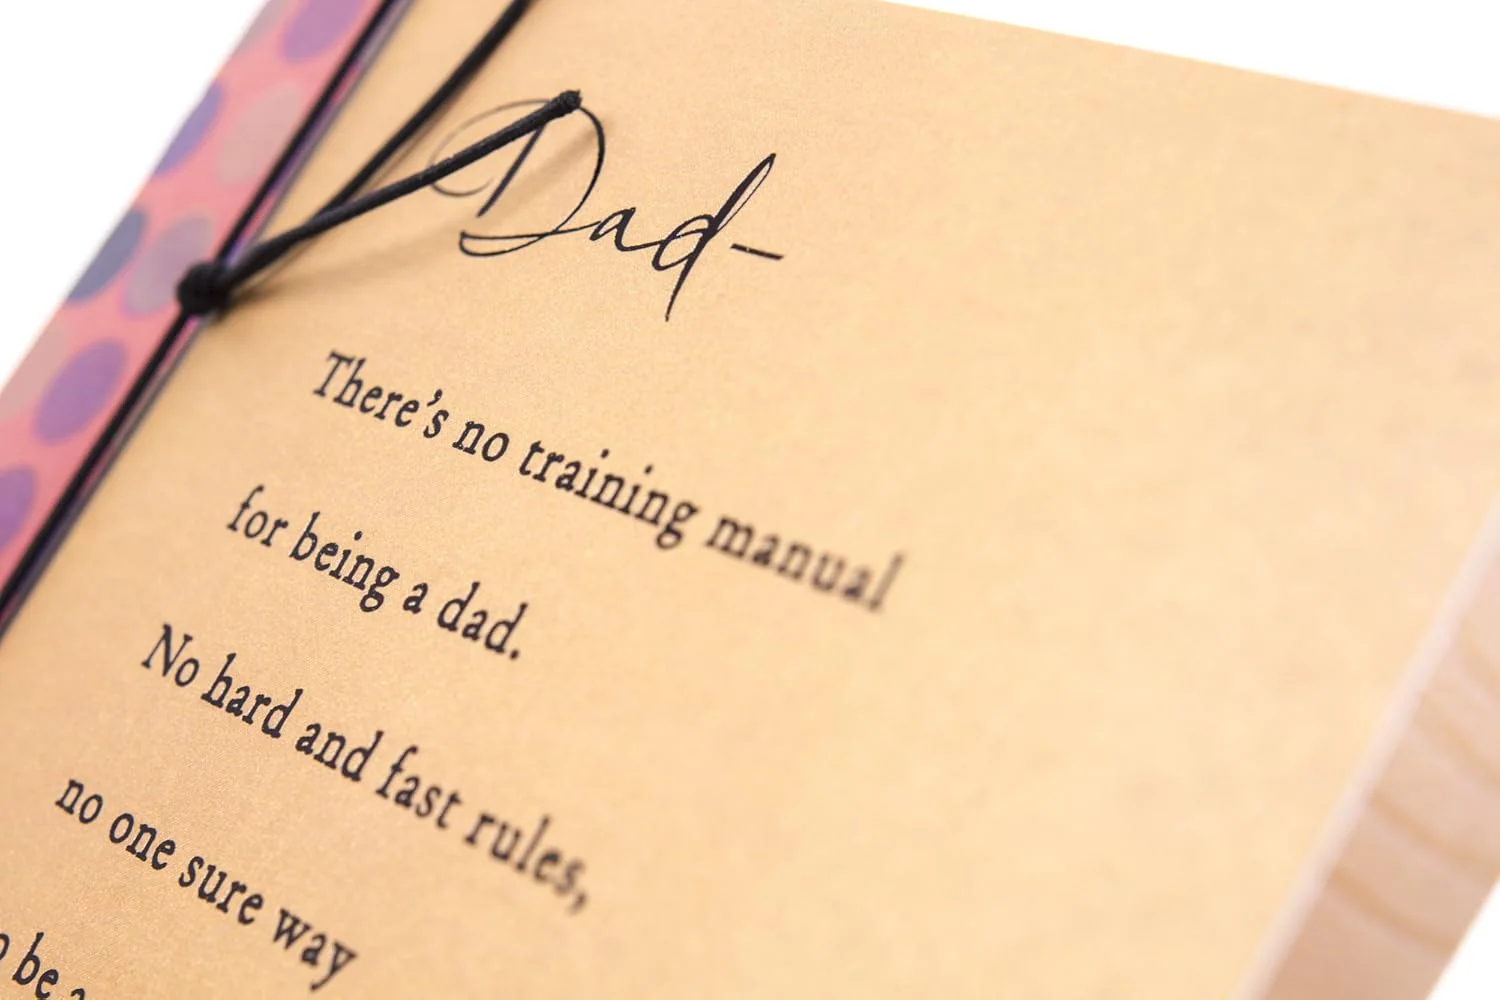 Dad-
There's no training manual
for being a dad.
No hard and fast rules,
no one sure way
be